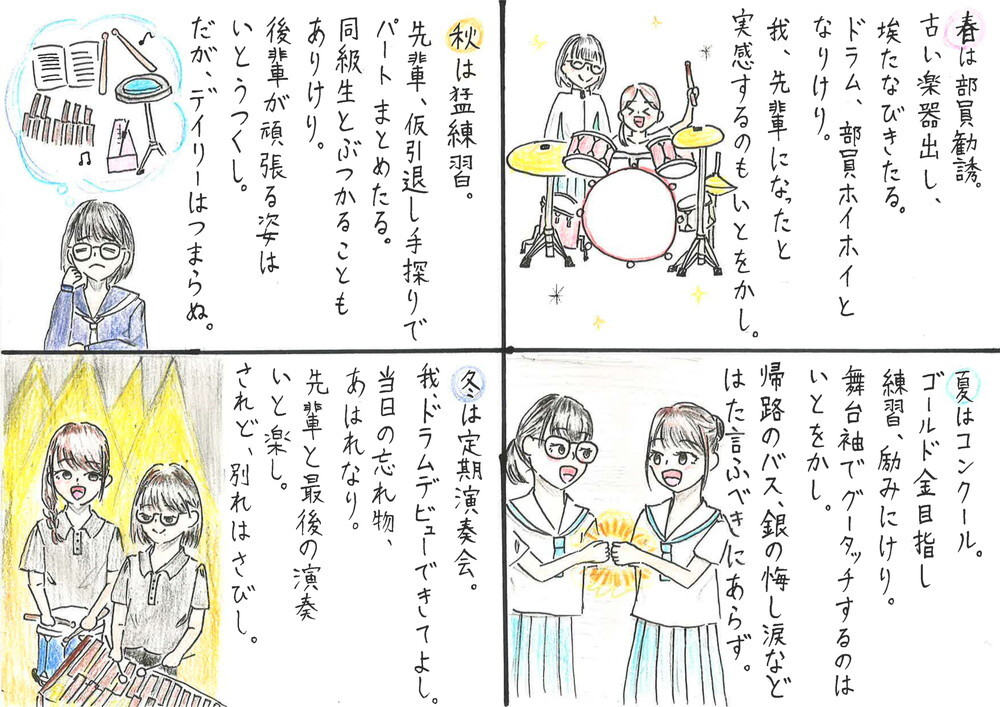 春は部員勧誘。
古い楽器出し、
埃たなびきたる。
ドラム、部員ホイホイと
なりけり。
我、先輩になったと
実感するのもいとをかし。
夏はコンクール。
ゴールド金目指し
練習、励みにけり。
舞台袖でグータッチするのは
いとをかし。
帰路のバス、銀の悔し涙など
はた言ふべきにあらず。
秋は猛練習。
先輩、仮引退し手探りで
パートまとめたる。
同級生とぶつかることも
ありけり。
後輩が頑張る姿は
いとうつくし。
だが、デイリーはつまらぬ。
冬は定期演奏会。
我、ドラムデビューできてよし。
当日の忘れ物、
あはれなり。
先輩と最後の演奏
いと楽し。
されど、別れはさびし。